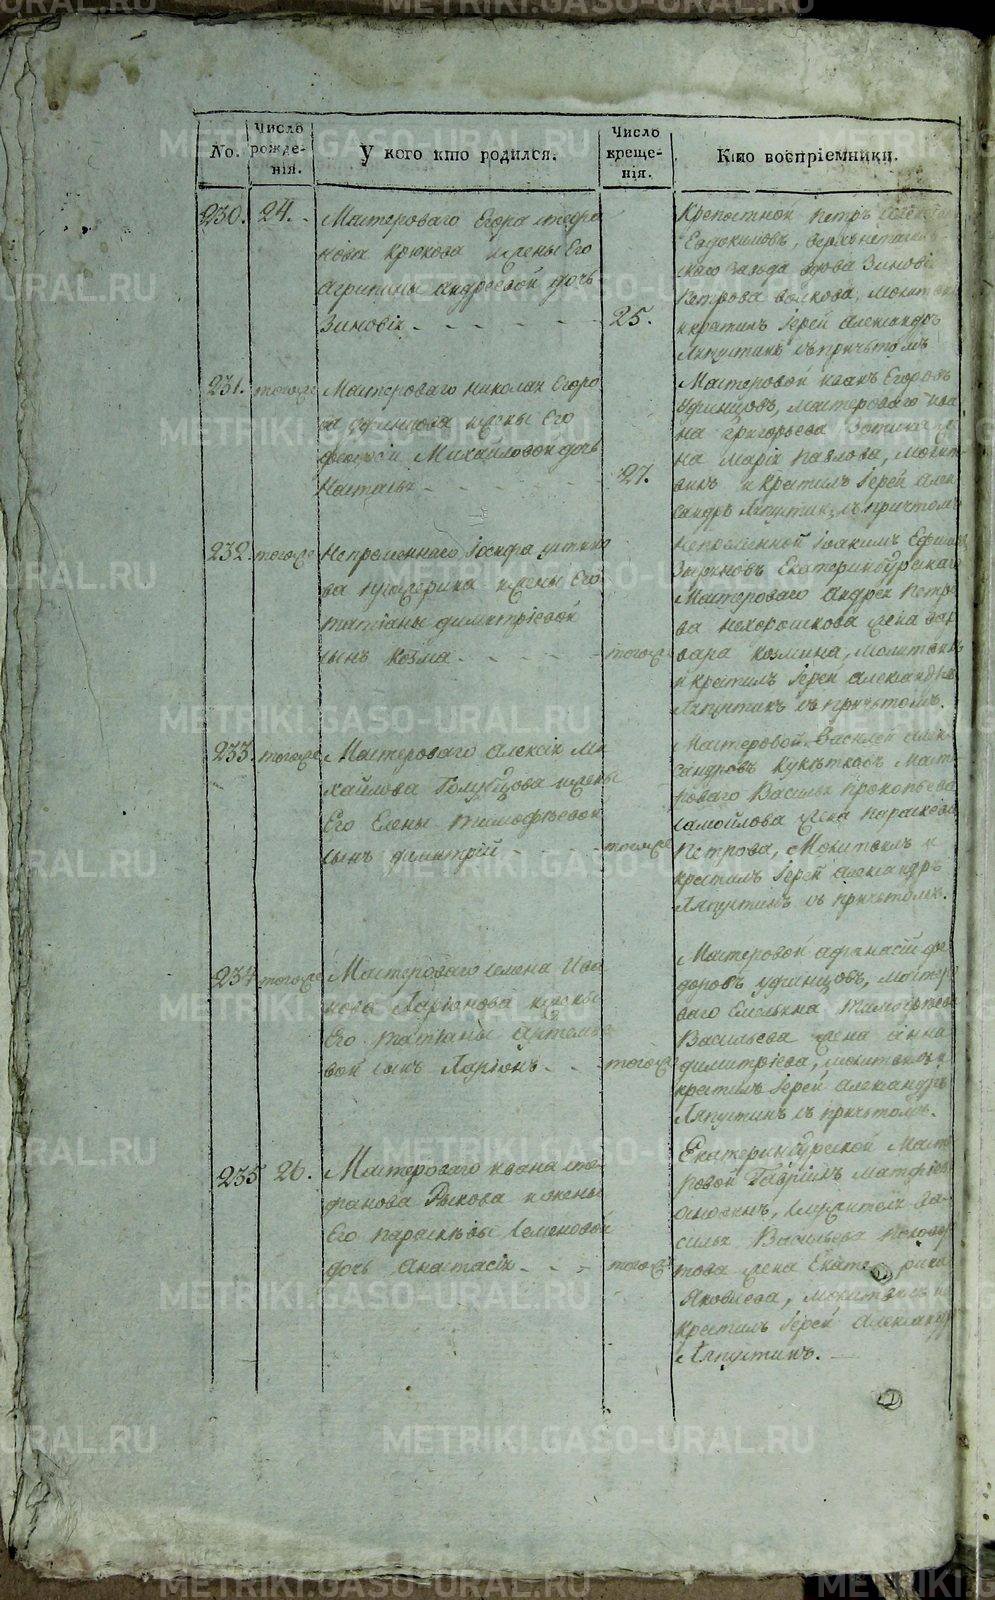 No.
Число рожденія.
У кого кто родился.
Число крещенія.
Кто воспріемники.
230. 24.
Мастероваго Егора Стефа
нова Крюкова жены Его
Агрипины Андреевой дочь
Зиновія
25.
Крепостной Петръ
Евдокимовъ,
скаго завода вдова Зиновія
Петрова Волкова, молитвилъ
и крестилъ Іерей Александръ
Ляпустинъ съ причтомъ
231. тогоже
Мастероваго Николая Егоро
ва Удинцова жены Его
Феодосіи Михайловой дочь
Наталья
27.
Мастеровой Иванъ Егоровъ
Удинцовъ, мастероваго Ива
на Григорьева
на Марія Павлова, молит
вилъ и крестилъ Іерей Алек
сандръ Ляпустинъ съ причтомъ
232. тогоже
Непременнаго Іосифа Устино
ва жены Его
Татіаны Димитріевой
сынъ Козма
тогоже
Непременной Іоакимъ Ефимовъ
Зыряновъ Екатеринбурскаго
Мастероваго Андрея Петро
ва Нехорошкова жена Вар
вара Козмина, молитвилъ
и крестилъ Іерей Александръ
Ляпустинъ съ причтомъ.
233. тогоже
Мастероваго Алексія Ми
хайлова Голубцова жены
Его Елены Тимофѣевой
сынъ Димитрій
тогоже
Мастеровой Василей Алек
сандровъ Масте
роваго Василья Прокопьева
Самойлова жена Параскева
Петрова, Молитвилъ и
крестилъ Іерей Александръ
Ляпустинъ съ причтомъ.
234 тогоже
Мастероваго Семена Ива
нова Ларіонова жены
Его Татіаны Артемье
вой сынъ Ларіонъ
тогоже
Мастеровой Афанасій Фе
доровъ Удинцовъ, мастеро
ваго Емельяна Тимофѣева
Васильева жена Анна
Димитріева, молитвилъ и
крестилъ Іерей Александръ
Ляпустинъ съ причтомъ.
235 26.
Мастероваго Ивана Сте
фанова Рыкова и жены
Его Параскѣвы Семеновой
дочь Анастасія
тогоже
Екатеринбурской Масте
ровой Гавріилъ Матфіевъ
служителя Ва
силья Васильева
това жена Екатерина
Яковлева, молитвилъ и
крестилъ Іерей Александръ
Ляпустинъ.
METRIKI.GASO-URAL.RU